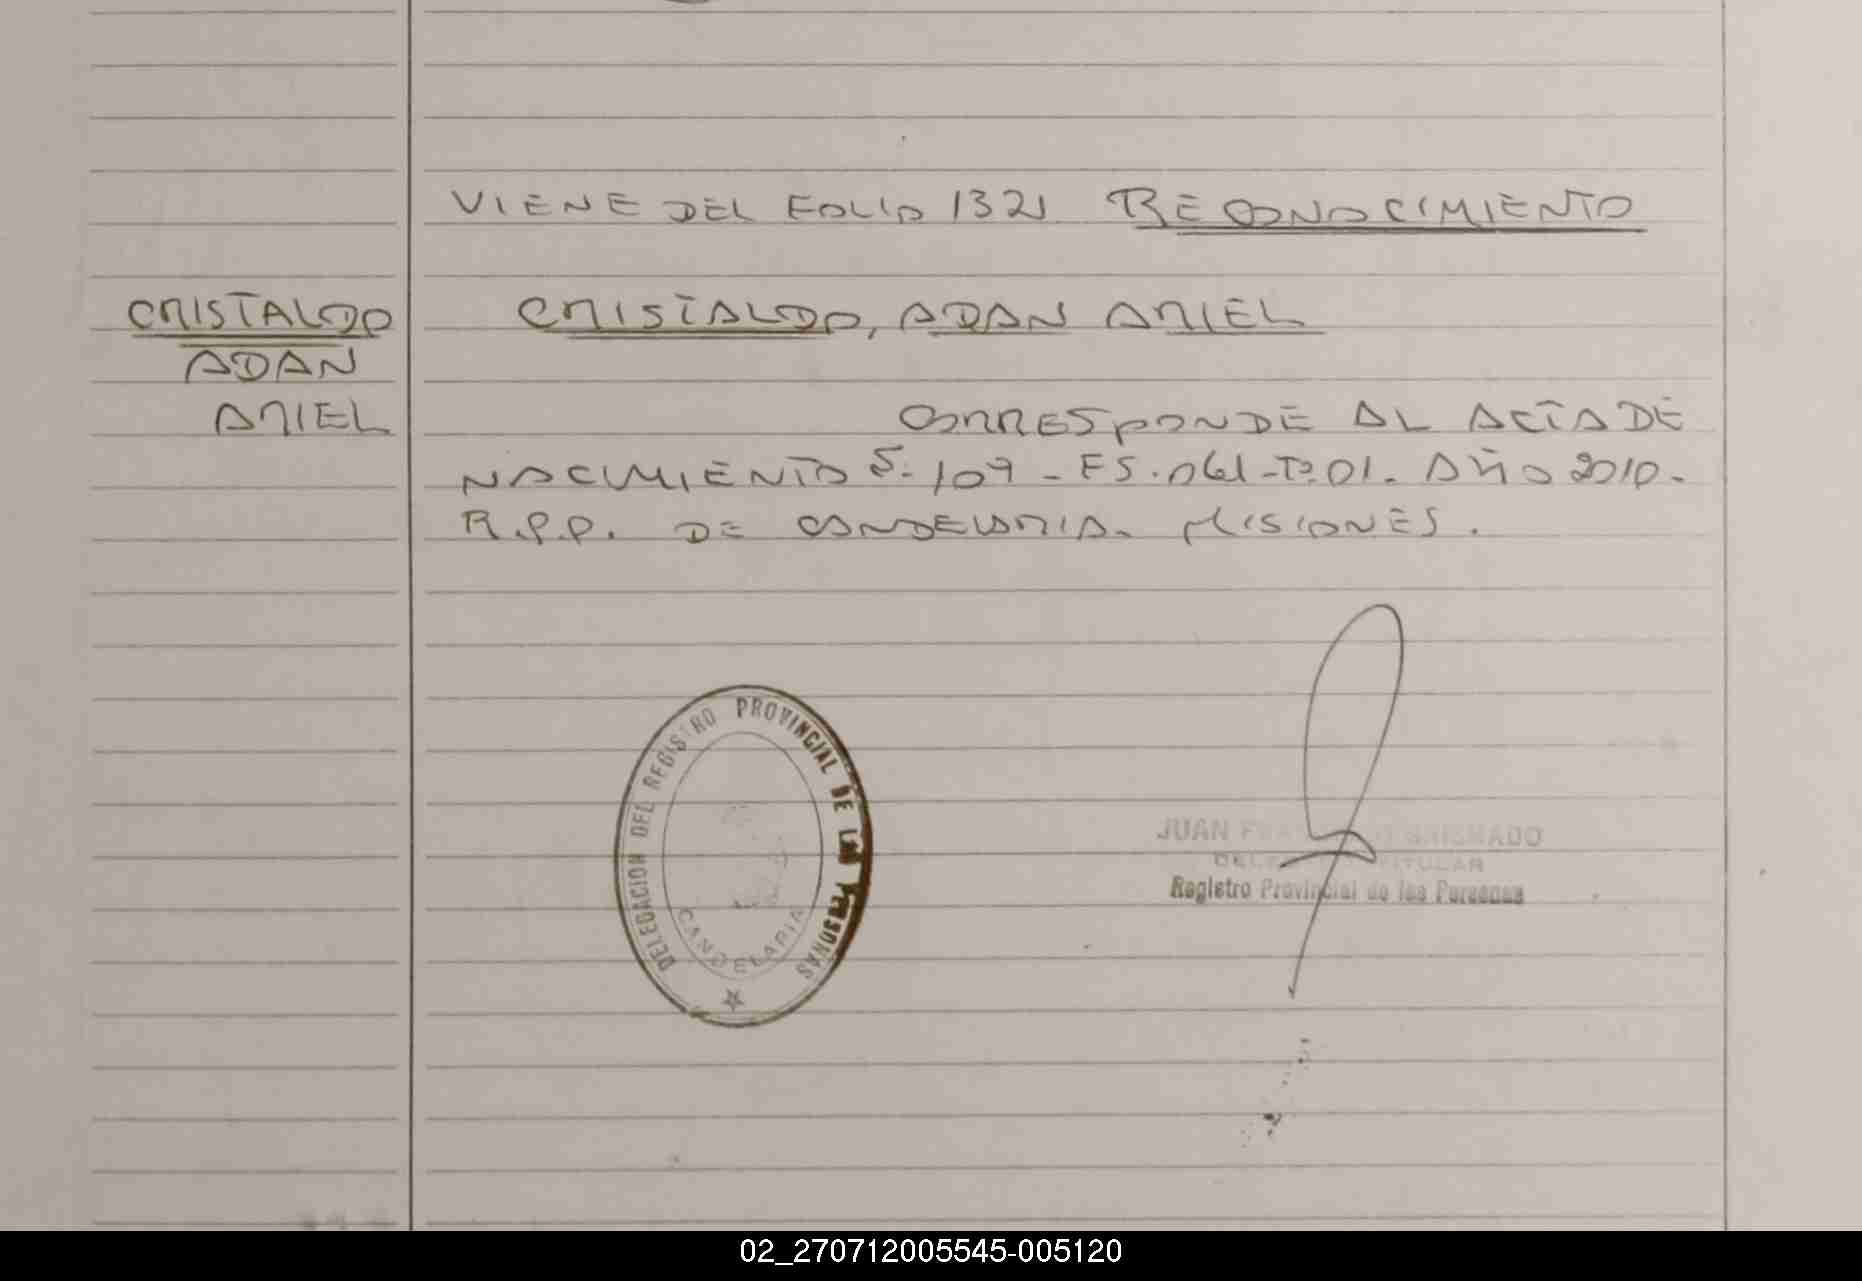 VIENE DEL FOLIO 1321 RECONOCIMIENTO
CRISTALDO
ADAN
ARIEL
CRISTALDO, ADAN ARIEL
CORRESPONDE AL ACTA DE
NACIMIENTO 5.109 - FS.061-Tº.01. AÑO 2010.
R.P.P. DE CANDELARIA. MISIONES.
DELEGACION DEL REGISTRO PROVINCIAL DE LAS PERSONAS
CANDELARIA
JUAN
TITULAR
Registro Provincial de las Personas
02_270712005545-005120